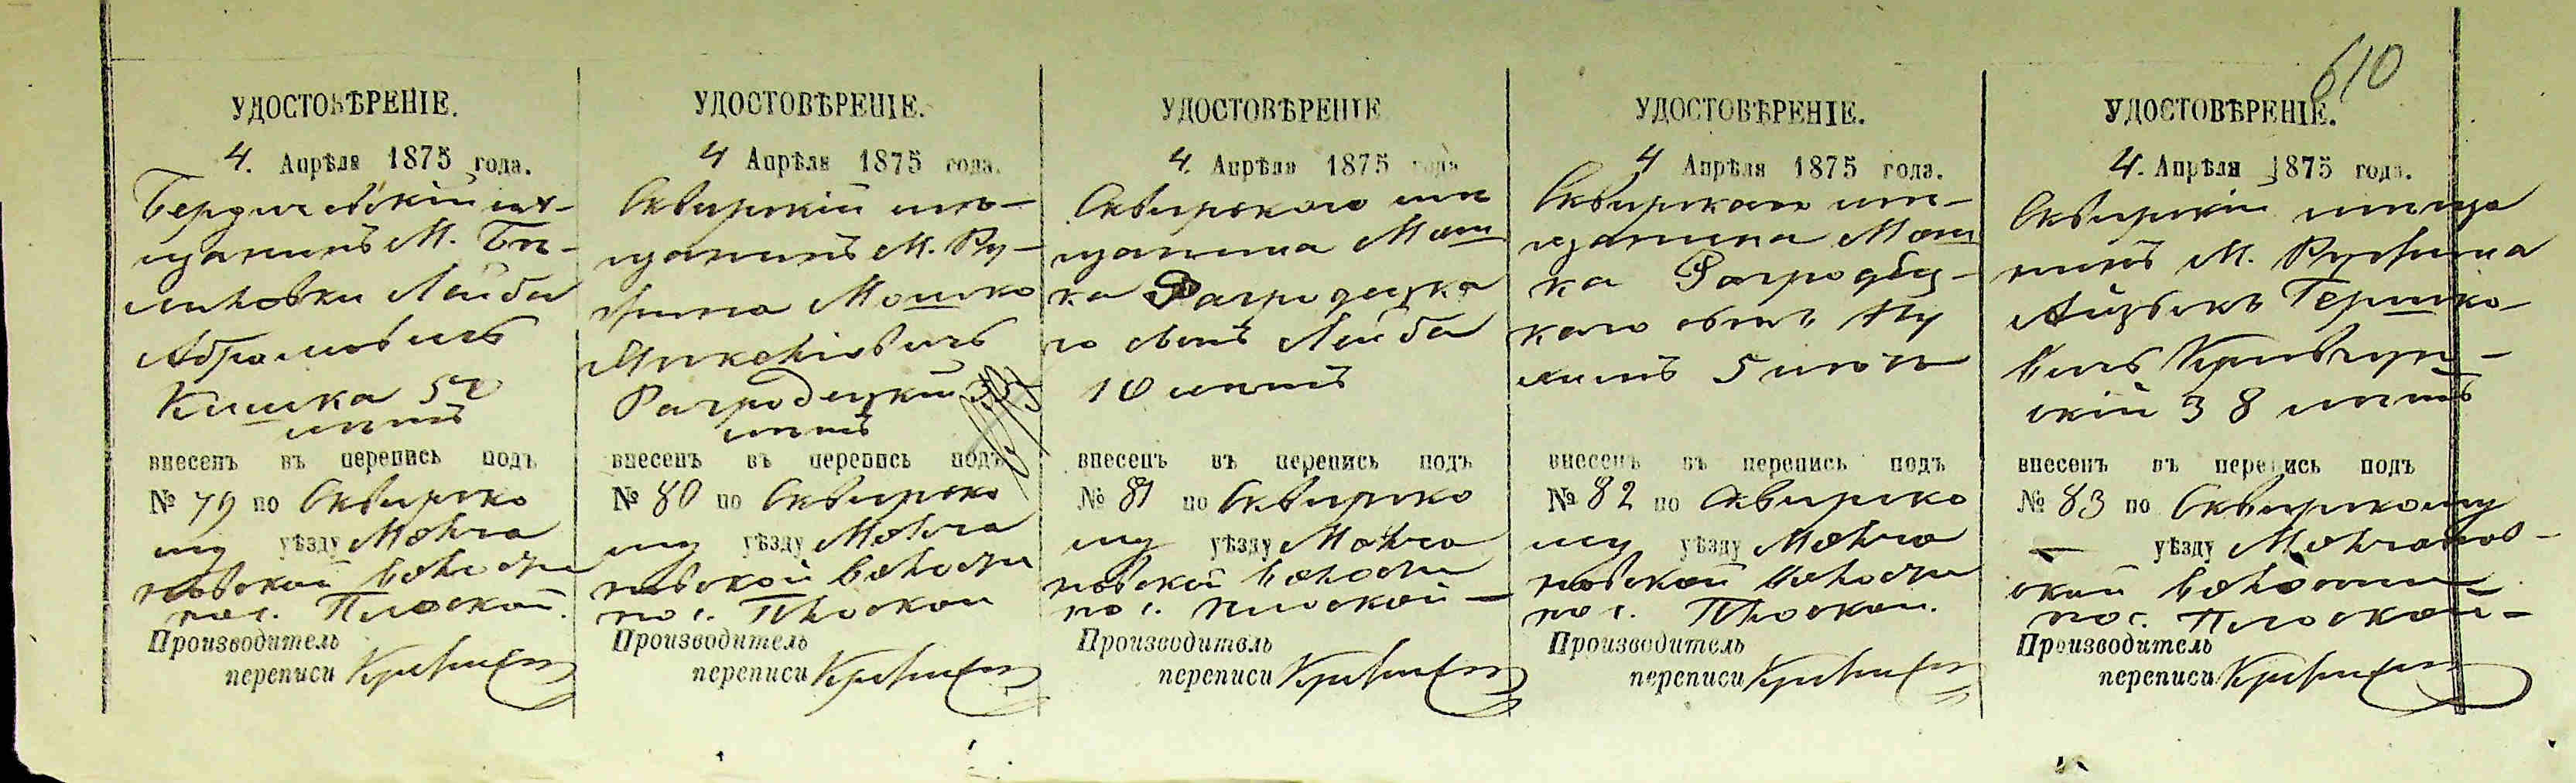 610
УДОСТОВѢРЕНІЕ.
4. Апрѣля 1875 года.
Бердичевскій мѣ-
щанинъ М. Бѣ-
лиловки Лейба
Абрамовичъ
Кишка 52
лѣтъ
внесенъ въ перепись подъ
№ 79 по Сквирско
му уѣзду Молча
новской волости
по с. Плоской.
Производитель
переписи
УДОСТОВѢРЕНІЕ.
4 Апрѣля 1875 года.
Сквирскій мѣ-
щанинъ М. Ру-
жина Мошко
Янкеліовичъ
Рагродецкій
лѣтъ
внесенъ въ перепись подъ
№ 80 по Сквирско
му уѣзду Молча
новской волости
по с. Плоской
Производитель
переписи
УДОСТОВѢРЕНІЕ
4. Апрѣля 1875 года
Сквирского мѣ
щанина Мош
ка Рагродецка
го сынъ Лейба
10 лѣтъ
внесенъ въ перепись подъ
№ 81 по Сквирско
му уѣзду Молча
новской волости
по с. Плоской
Производитель
переписи
УДОСТОВѢРЕНІЕ.
4 Апрѣля 1875 года.
Сквирского мѣ-
щанина Мош
ка Рагродец-
кого сынъ Ну
химъ 5 лѣтъ
внесенъ въ перепись подъ
№ 82 по Сквирско
му уѣзду Молча
новской волости
по с. Плоской.
Производитель
переписи
УДОСТОВѢРЕНІЕ.
4. Апрѣля 1875 года.
Сквирскій мѣща
нинъ М. Ружина
Айзыкъ Гершко-
вичъ
скій 38 лѣтъ
внесенъ въ перепись подъ
№ 83 по Сквирскому
уѣзду Молчанов-
ской волости
по с. Плоской
Производитель
переписи